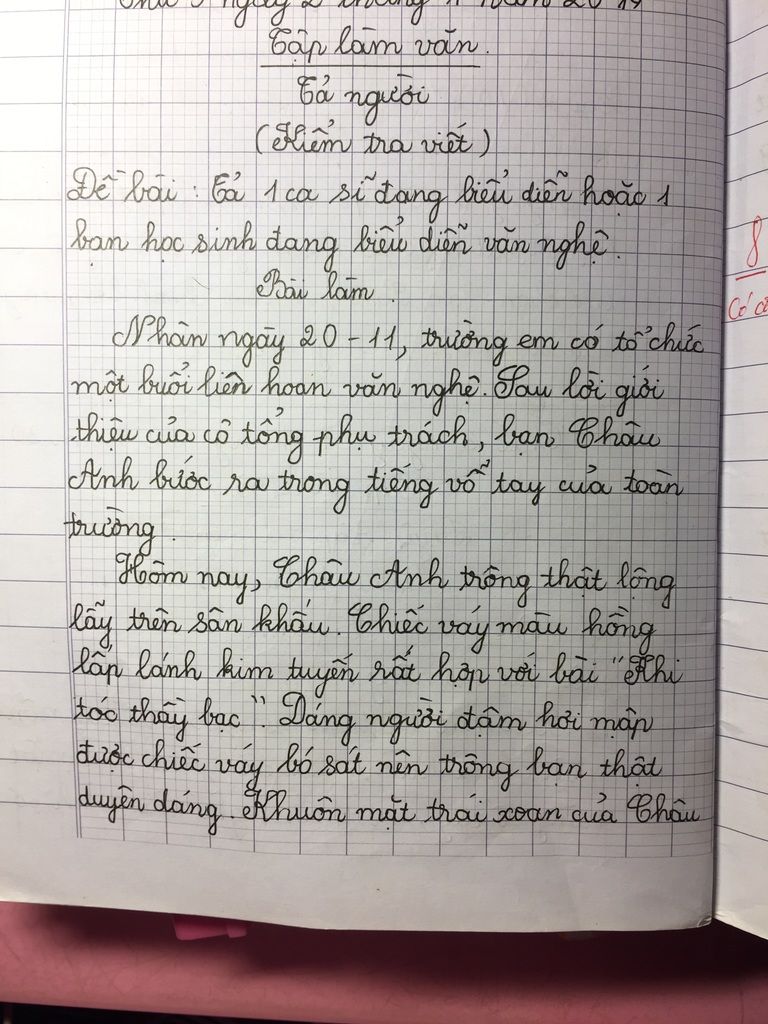 Tập làm văn.
Tả người
(Kiểm tra viết)
Đề bài: Tả 1 ca sĩ đang biểu diễn hoặc 1
bạn học sinh đang biểu diễn văn nghệ.
Bài làm.
Nhân ngày 20-11, trường em có tổ chức
một buổi liên hoan văn nghệ. Sau lời giới
thiệu của cô tổng phụ trách, bạn Châu
Anh bước ra trong tiếng vỗ tay của toàn
trường.
Hôm nay, Châu Anh trông thật lộng
lẫy trên sân khấu. Chiếc váy màu hồng
lấp lánh kim tuyến rất hợp với bài "Khi
tóc thầy bạc". Dáng người đậm hơi mập
được chiếc váy bó sát nên trông bạn thật
duyên dáng. Khuôn mặt trái xoan của Châu
8
Có